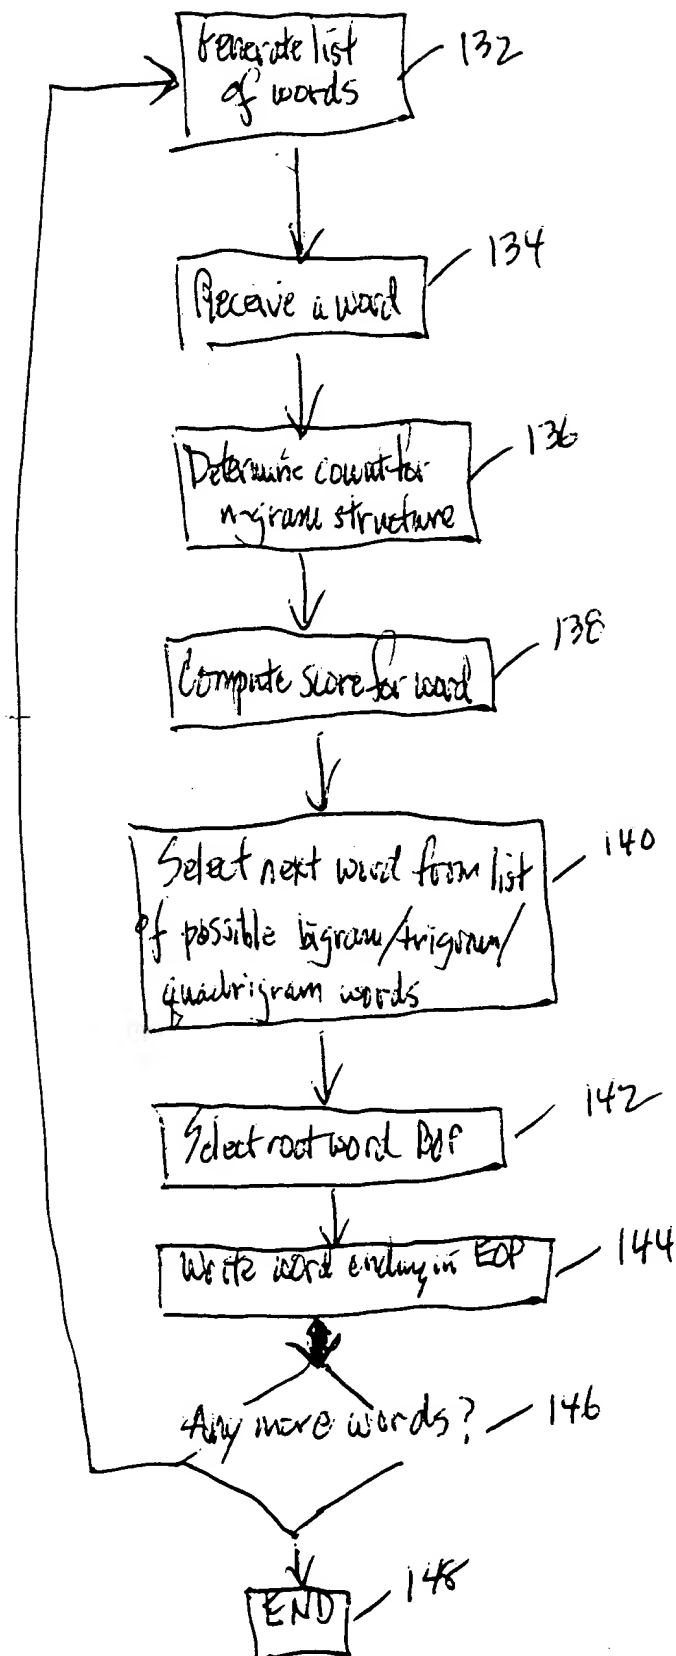 Generate list
of words
132
Receive a word
134
Determine count for
n-gram structure
136
Compute score for word
138
Select next word from list
of possible bigram/trigram/
quadrigram words
140
Select root word BOP
142
Write word ending in EOP
144
Any more words?
146
END
148